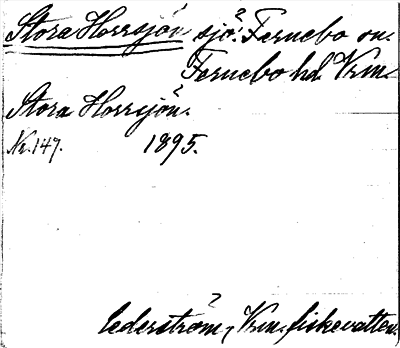 Stora Horrsjön sjö? Fernebo sn.
Fernebo hd. Vrm.
Stora Horrsjön.
Nr. 147. 1895.
Cederström, Vrm. fiskevatten.